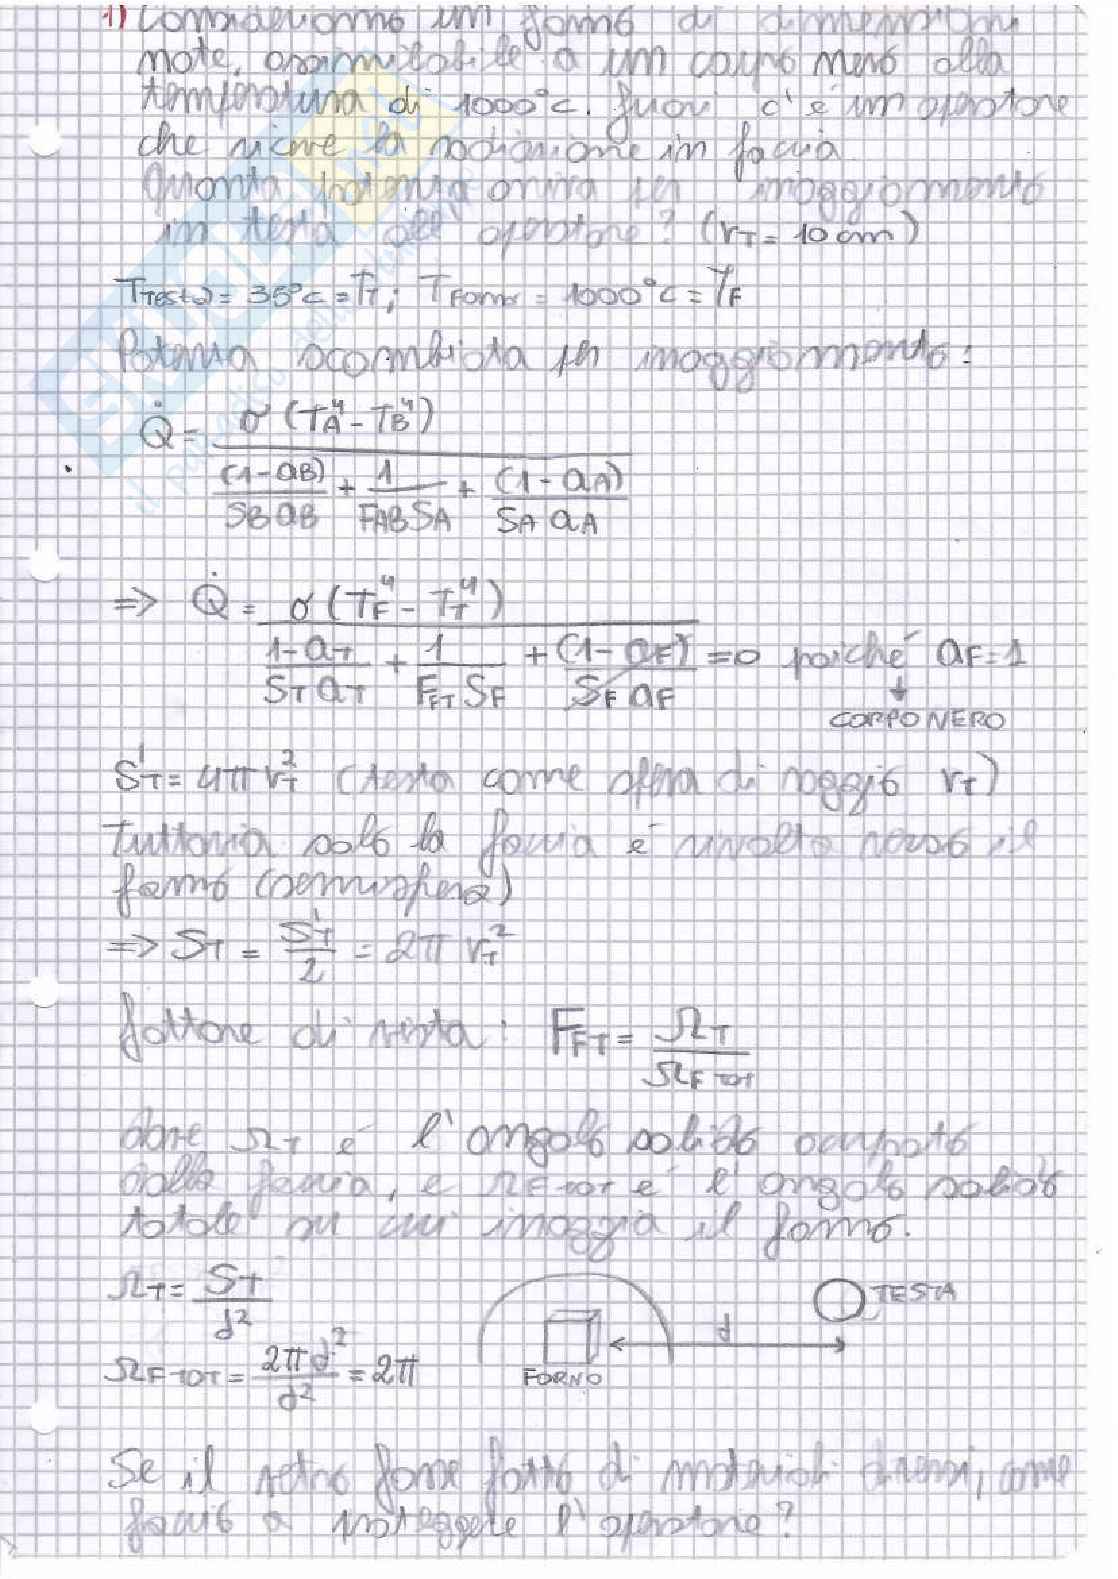 1) Consideriamo un forno di dimensioni
note, assimilabile a un corpo nero alla
temperatura di 1000°C. Fuori c'é un operatore
che riceve la radiazione in faccia
Quanta potenza arriva per irraggiamento
in testa all' operatore? (rT = 10 cm)
TTesta = 35°C = TT ; TForno = 1000°C = TF
Potenza scambiata per irraggiamento:
Q̇ = σ (TA⁴ - TB⁴) / ( (1-aB)/(SB aB) + 1/(FAB SA) + (1-aA)/(SA aA) )
=> Q̇ = σ (TF⁴ - TT⁴) / ( (1-aT)/(ST aT) + 1/(FFT SF) + (1-aF)/(SF aF) ) = 0 poiché aF = 1
↓
CORPO NERO
S'T = 4π rT² (testa come sfera di raggio rT)
Tuttavia solo la faccia é rivolta verso il
forno (semisfera)
=> ST = S'T/2 = 2π rT²
fattore di vista: FFT = ΩT / ΩF-TOT
dove ΩT é l'angolo solido occupato
dalla faccia, e ΩF-TOT é l'angolo solido
totale su cui irraggia il forno.
ΩT = ST / d²
TESTA
d
ΩF-TOT = 2π d² / d² = 2π
FORNO
Se il vetro fosse fatto di materiali diversi, come
faccio a proteggere l'operatore?
SKUOLA.net
il paradiso dello studente